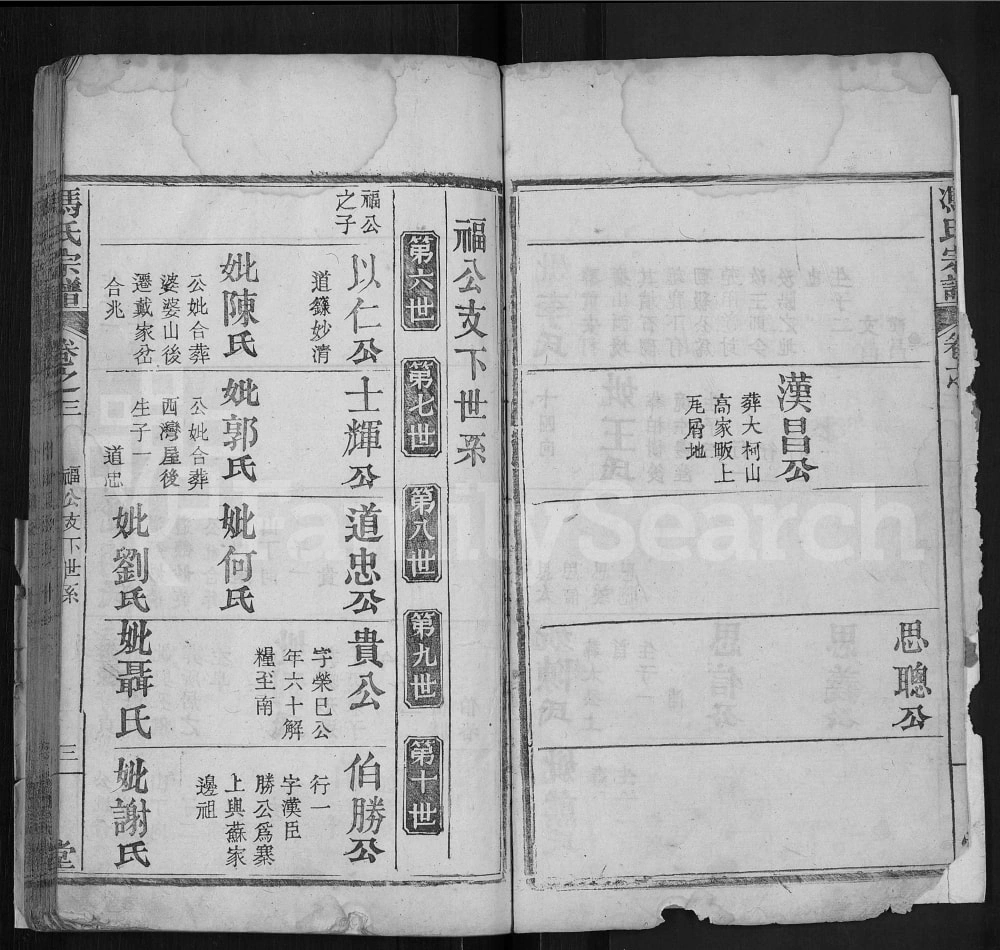 馮氏宗譜
卷之
漢昌公
葬大柯山
高家畈上
兎屑地
思聰公
福公支下世系
第六世
第七世
第八世
第九世
第十世
福公
之子
以仁公
道籙妙清
妣陳氏
公妣合葬
婆婆山後
遷戴家岔
合兆
士輝公
妣郭氏
公妣合葬
西灣屋後
生子一
道忠
道忠公
妣何氏
妣劉氏
貴公
字榮巳公
年六十解
糧至南
妣聶氏
伯勝公
行一
字漢臣
勝公爲寨
上與蘇家
邊祖
妣謝氏
馮氏宗譜
卷之三
福公支下世系
三
堂
FamilySearch